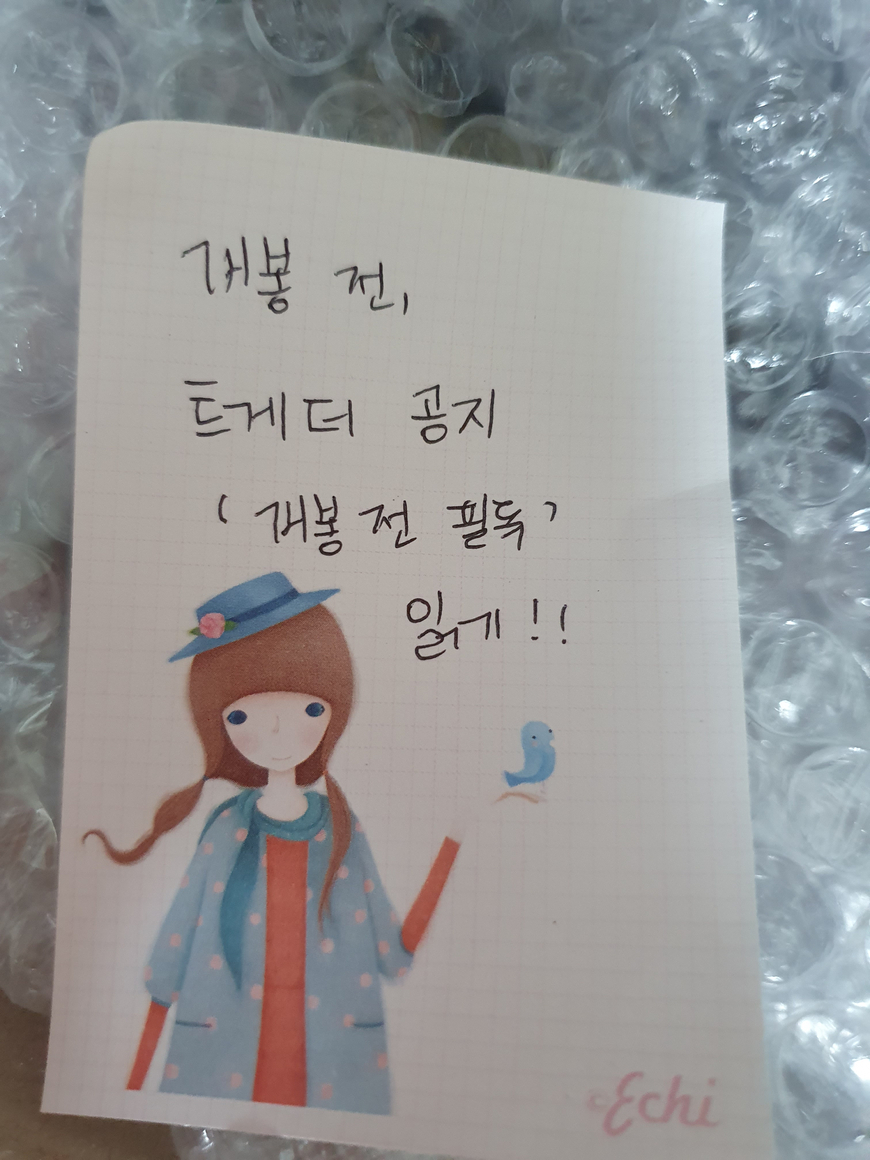 개봉 전,
트게더 공지
‘개봉 전 필독’
읽게!!
©Echi